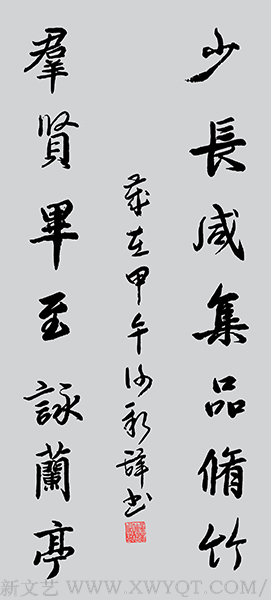 少長咸集品脩竹
歲在甲午 書
羣賢畢至詠蘭亭
新文艺 WWW.XWYQT.COM/